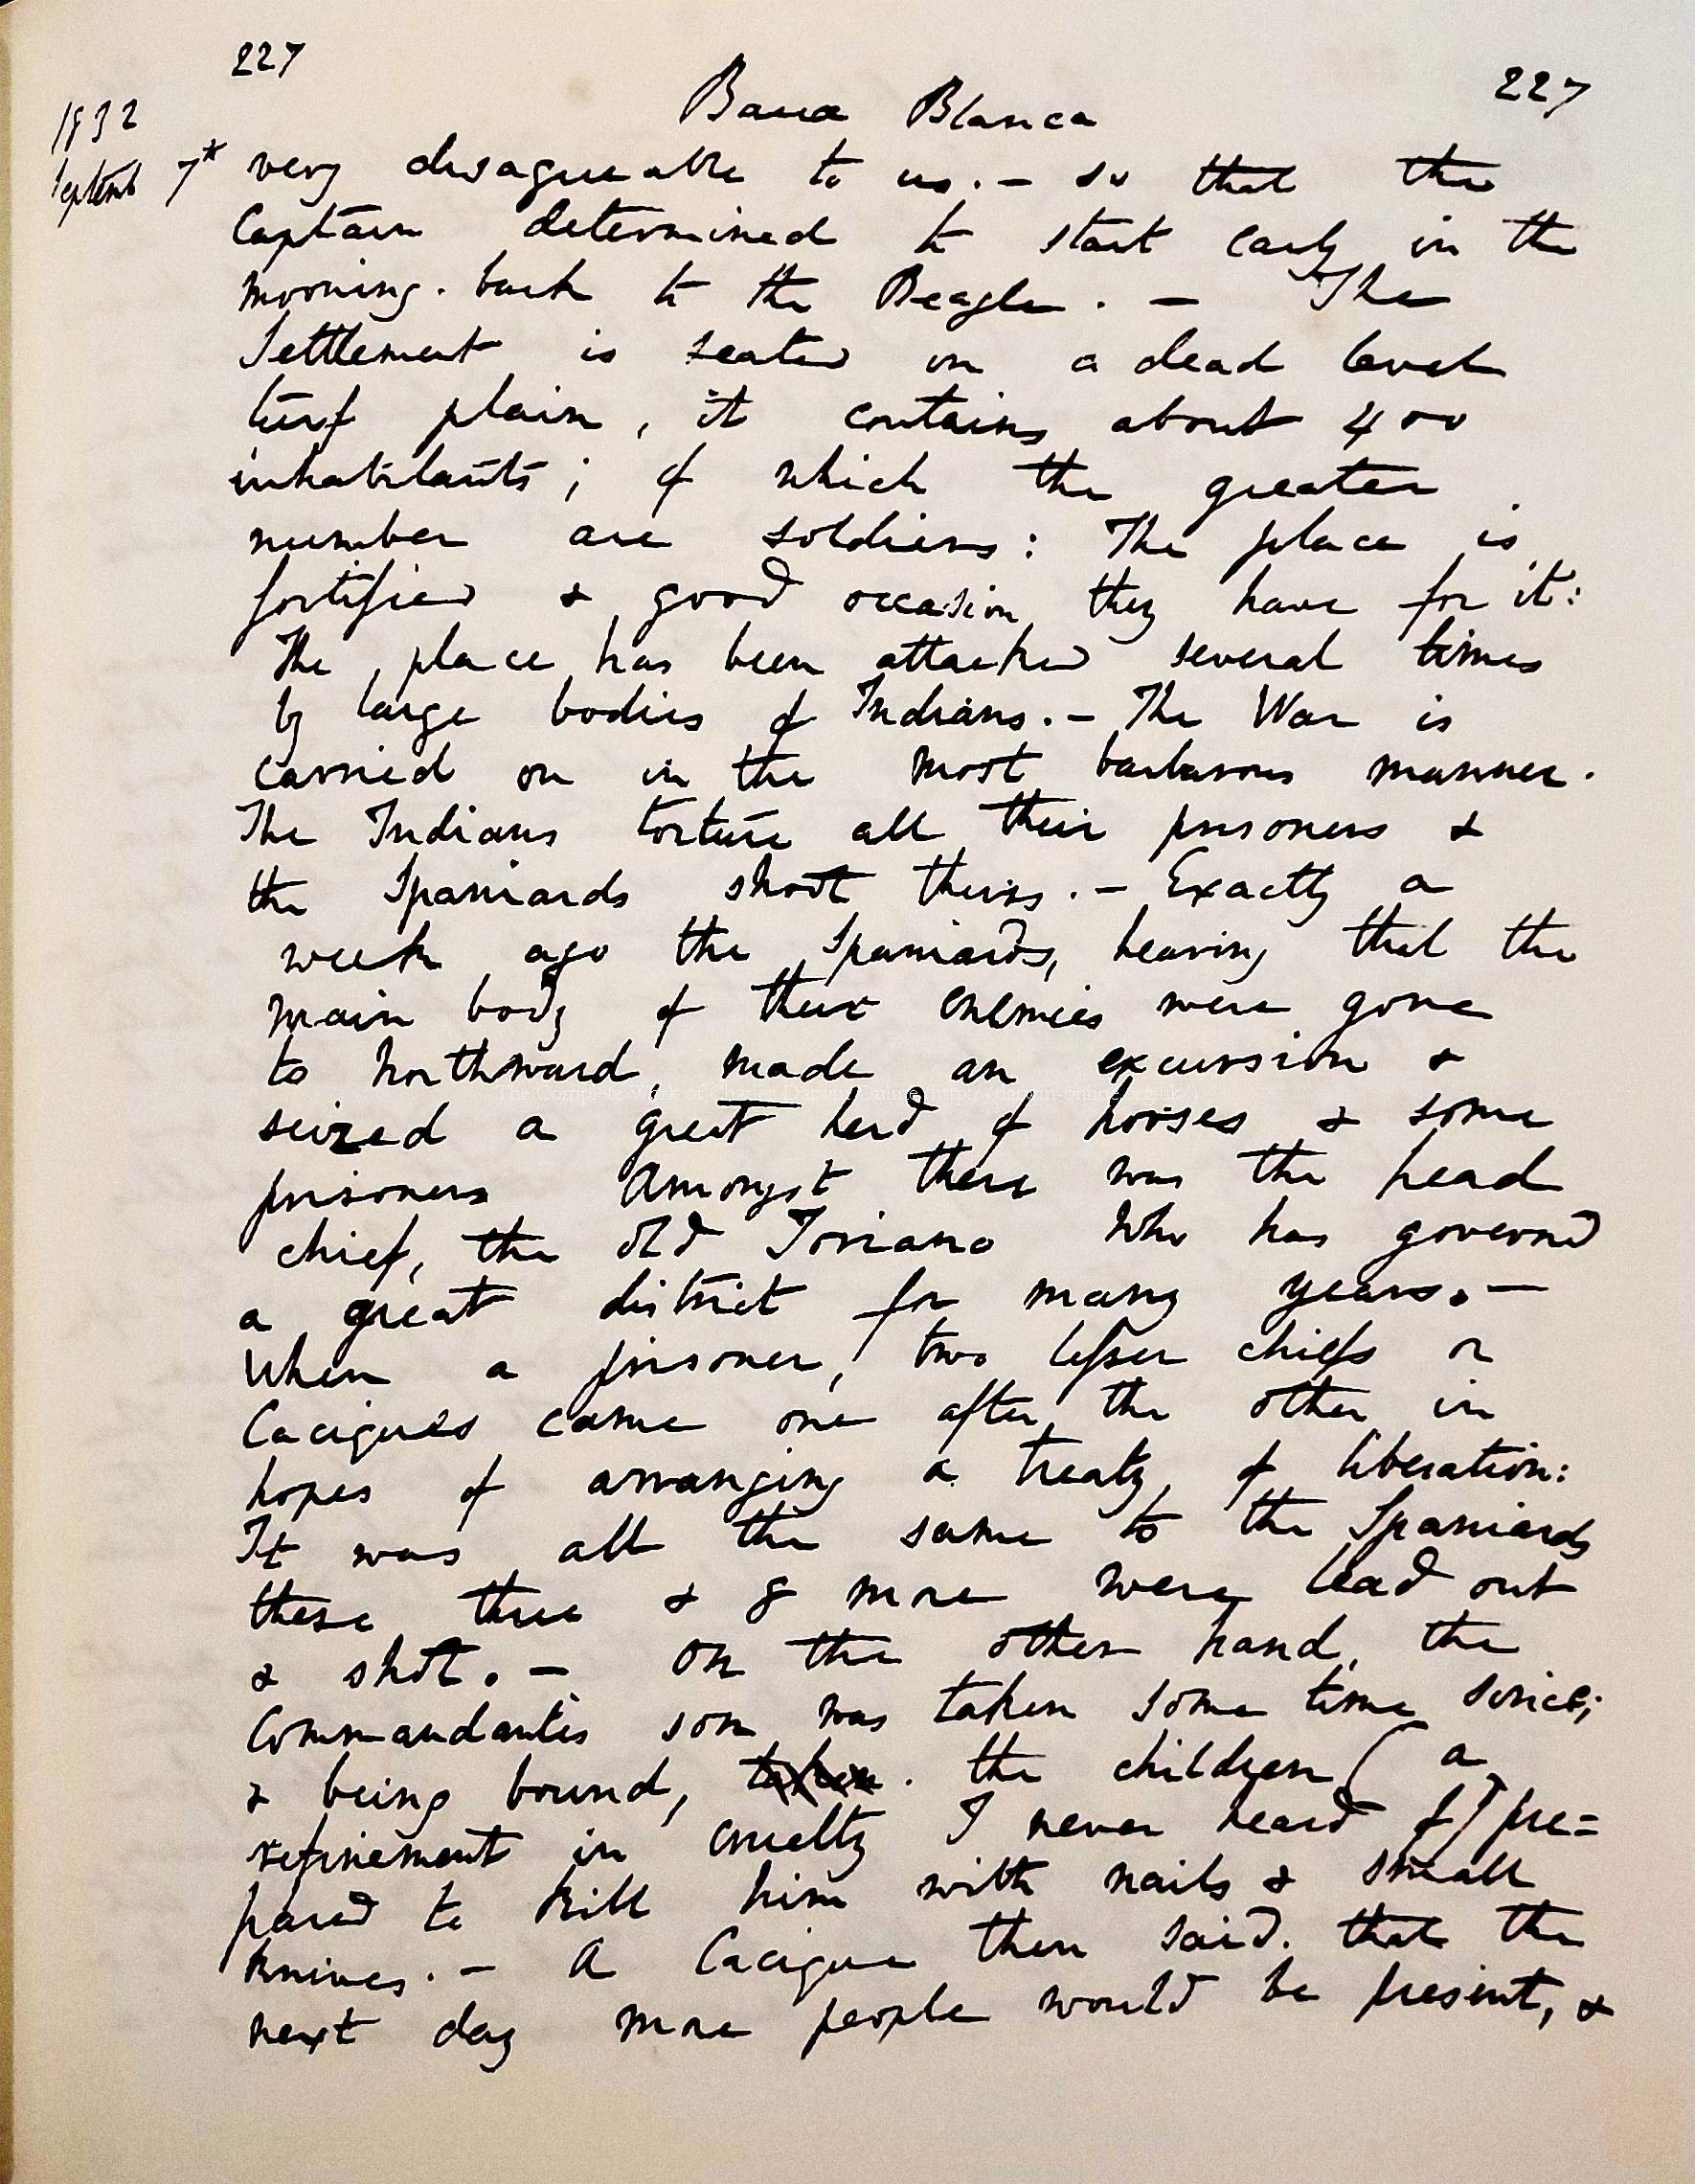 227
Baia Blanca
227
1832
Septemb 7th very disagreeable to us. — so that the
Captain determined to start early in the
morning. back to the Beagle. — The
Settlement is seated on a dead level
turf plain, it contains about 400
inhabitants; of which the greater
number are soldiers: The place is
fortified & good occasion they have for it:
The place has been attacked several times
by large bodies of Indians. — The War is
carried on in the most barbarous manner.
The Indians torture all their prisoners &
the Spaniards shoot theirs. — Exactly a
week ago the Spaniards, hearing that the
main body of their enemies were gone
to northward, made an excursion &
seized a great herd of horses & some
prisoners Amongst these was the head
chief, the old Toriano who has governed
a great district for many years. —
When a prisoner, two lesser chiefs or
Caciques came one after the other in
hopes of arranging a treaty of liberation:
It was all the same to the Spaniards
these three & 8 more were lead out
& shot. — On the other hand, the
Commandantes son was taken some time since;
& being bound, taken. the children (a
refinement in cruelty I never heard of) pre=
pared to kill him with nails & small
knives. — A Cacique then said. that the
next day more people would be present, &